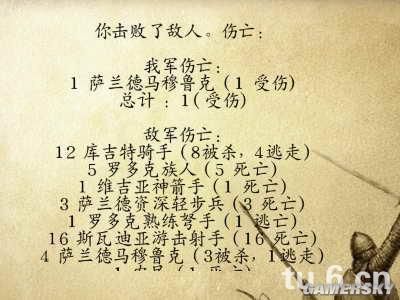 你击败了敌人。伤亡:
我军伤亡:
1 萨兰德马穆鲁克 (1 受伤)
总计 : 1(受伤)
敌军伤亡:
12 库吉特骑手 (8被杀, 4逃走)
5 罗多克族人 (5 死亡)
1 维吉亚神箭手 (1 死亡)
3 萨兰德资深轻步兵 (3 死亡)
1 罗多克熟练弩手 (1 逃亡)
16 斯瓦迪亚游击射手 (16 死亡)
4 萨兰德马穆鲁克 (3被杀, 1逃走)
tu.6.cn
GAMERSKY